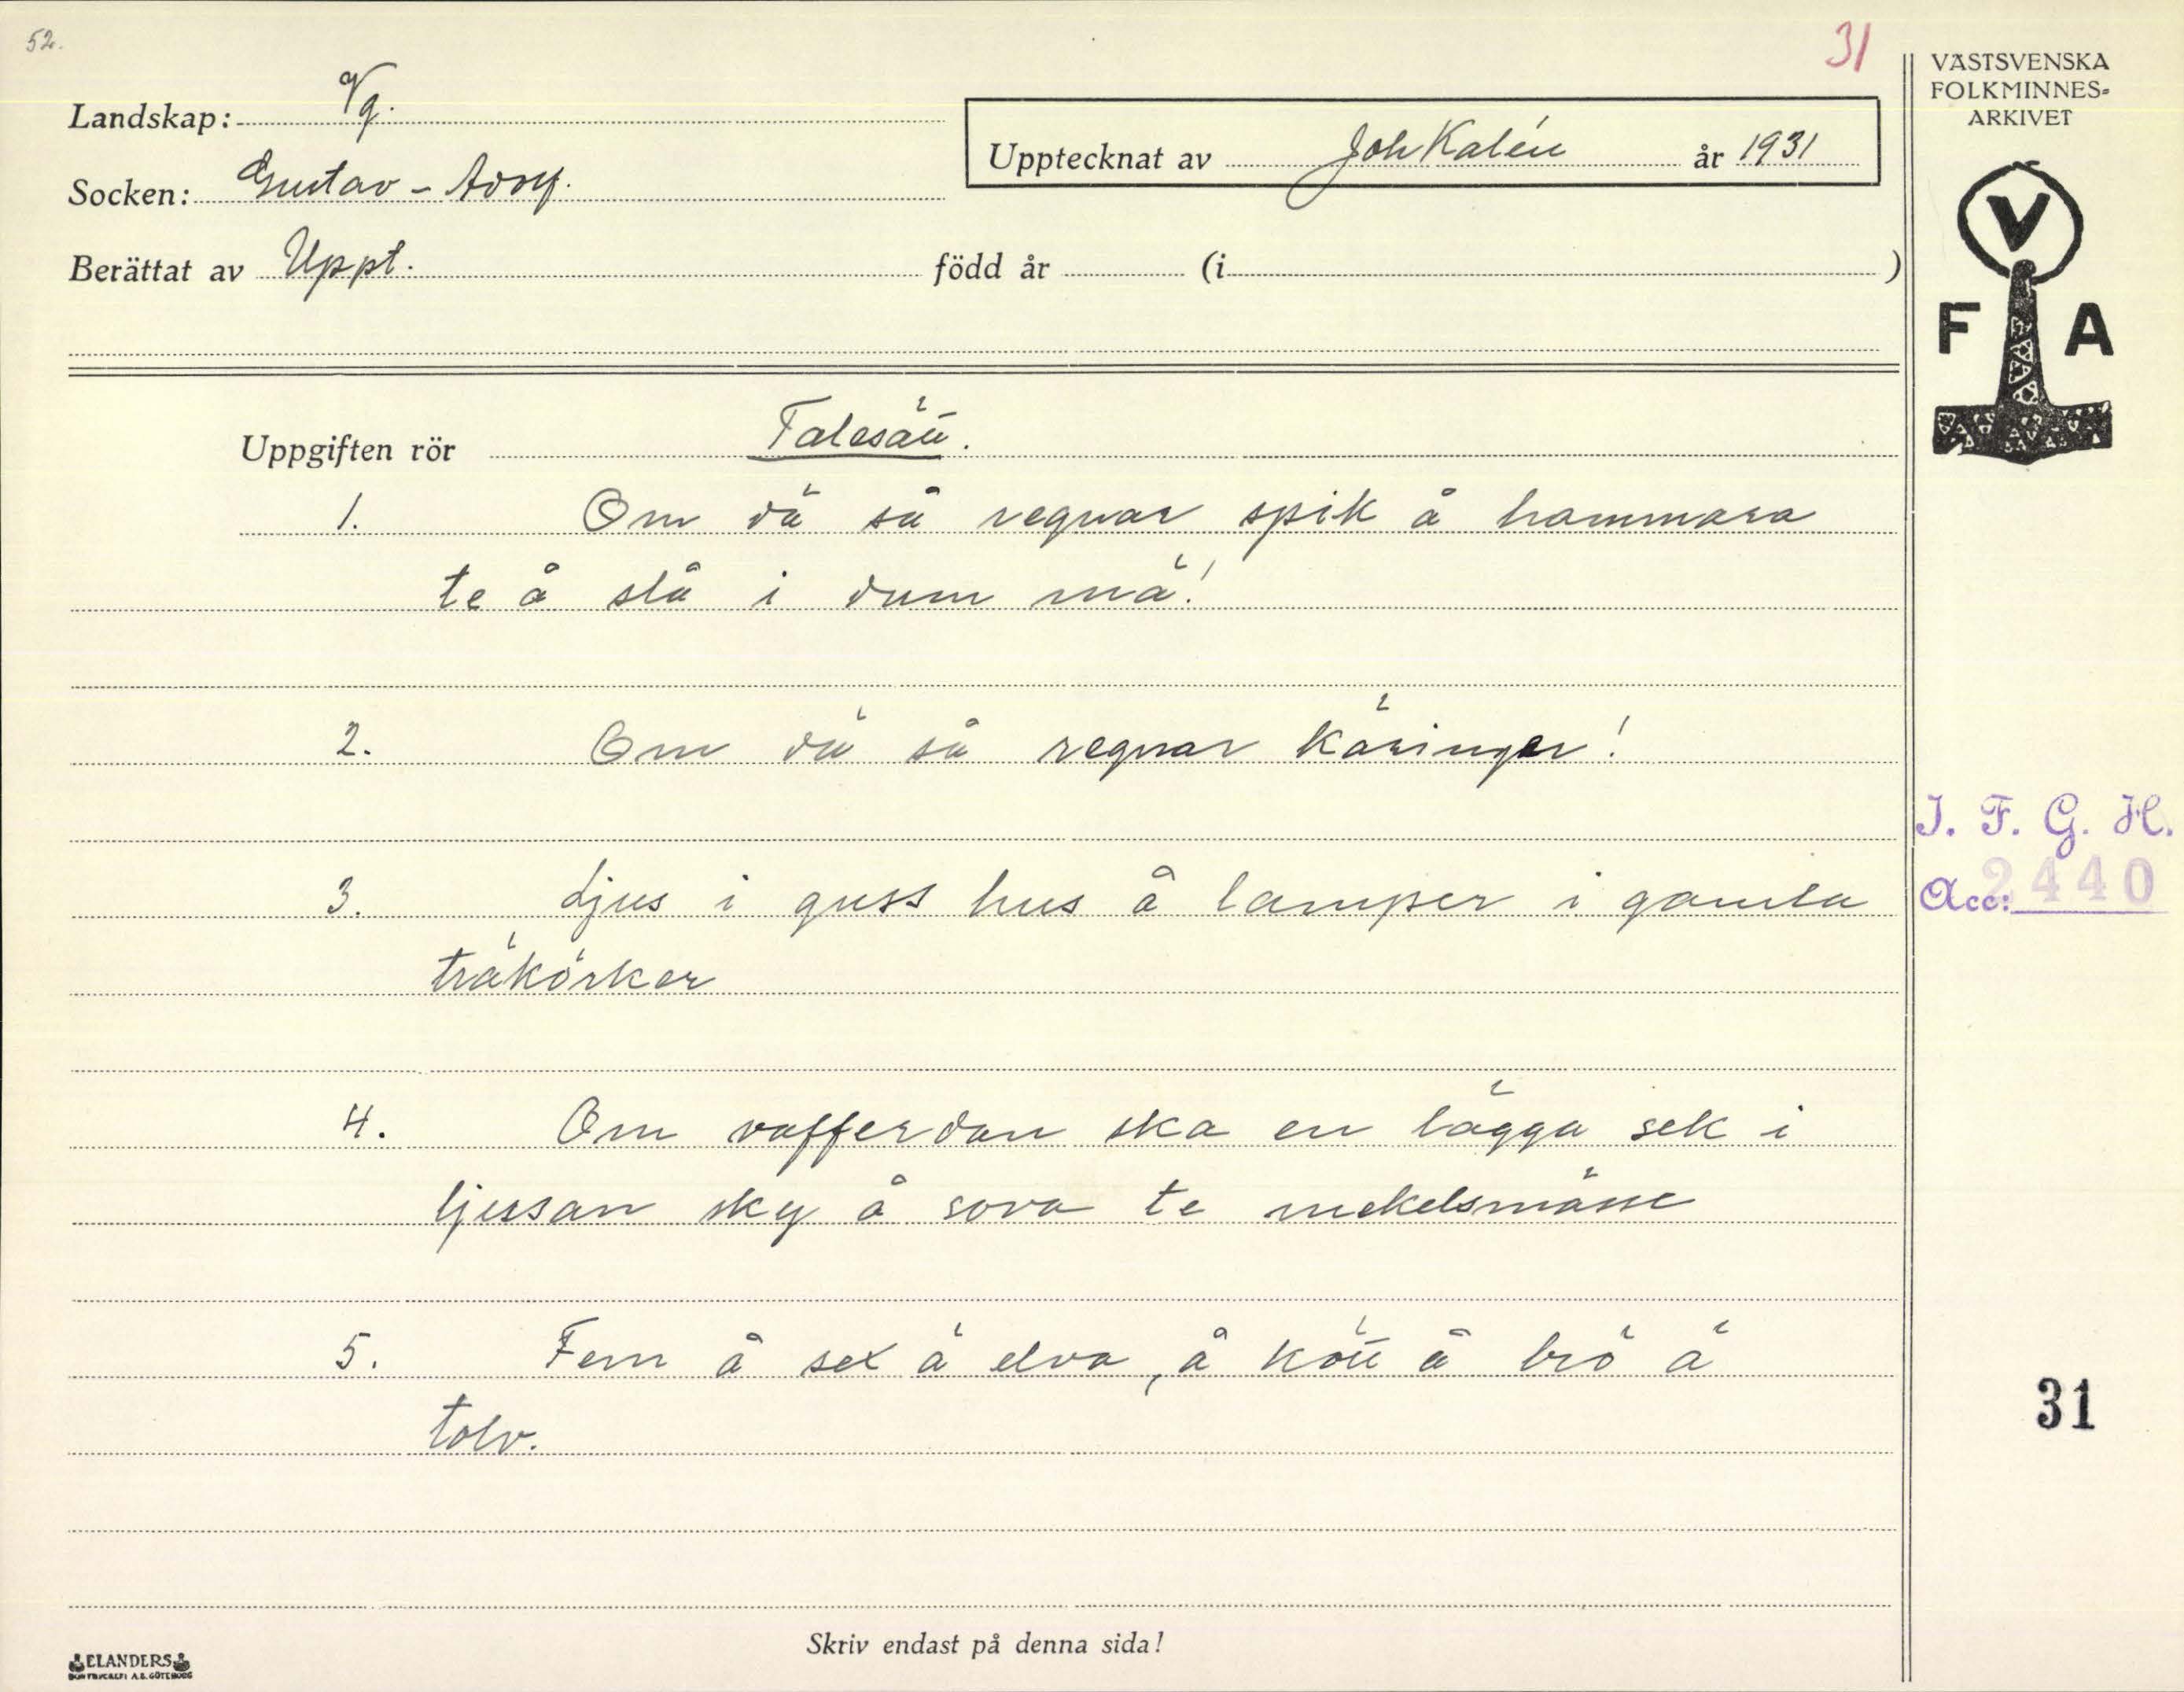 52.
31
Landskap: Vg.
Socken: Gustav-Adolf.
Upptecknat av Joh Kalén år 1931
Berättat av Uppt. född år (i )
VÄSTSVENSKA
FOLKMINNES-
ARKIVET
V
F A
Uppgiften rör Talesätt.
1. Om dä så regnar spik å hammara
te å slå i dum mä!
2. Om dä så regnar käringer!
3. Ljus i guss hus å lamper i gamla
träkörker
4. Om vafferdan ska en lägga sek i
ljusan sky å sova te mekelsmässe
5. Fem å sex ä elva, å kött å brö ä
tolv.
I. F. G. H.
Acc: 2440
31
Skriv endast på denna sida!
ELANDERS